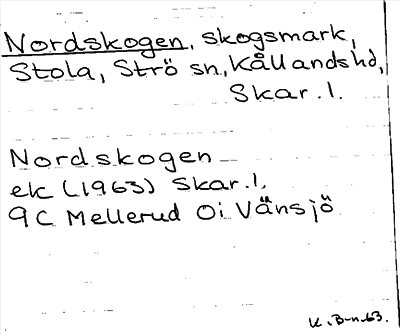 Nordskogen, skogsmark,
Stola, Strö sn, Kållandshd,
Skar. l.
Nordskogen
ek (1963) Skar. l.
9C Mellerud Oi Vänsjö
K. B-n. 63.